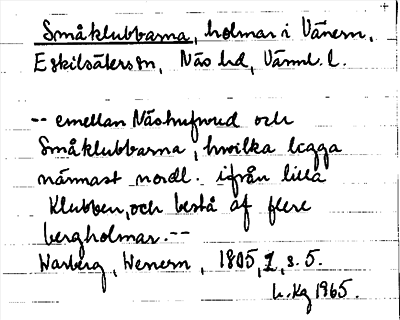 Småklubbarna, holmar i Vänern,
Eskilsäters sn, Näs hd, Värml. l.
-- emellan Näshufwud och
Småklubbarna, hwilka ligga
närmast nordl. ifrån lilla
Klubben, och bestå af flere
bergholmar. --
Warberg, Wenern, 1805, I, s. 5.
1965.